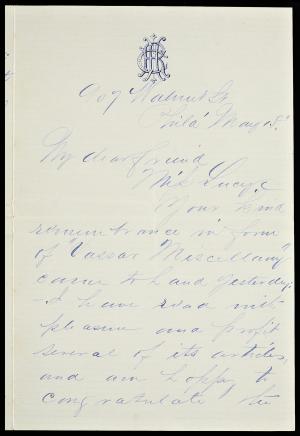 907 Walnut St
Phila' May 18.'
My dear friend
Miss Lucy;
Your kind
remembrance in form
of "Vassar Miscellany"
came to hand yesterday;
I have read with
pleasure and profit
several of its articles,
and am happy to
congratulate the